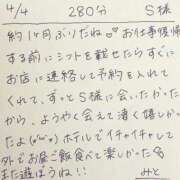 4/4 280分 S様
約1ヶ月ぶりだね♡お仕事復帰
する前にシフト載せたらすぐに
お店に連絡して予約を入れて
くれて、ずっとS様に会いたかった
から、ようやく会えて凄く嬉しかっ
たよ(๑′ᴗ‵๑)ホテルでイチャイチャして
外でお昼ご飯食べて楽しかった
また遊ぼうね!! みと